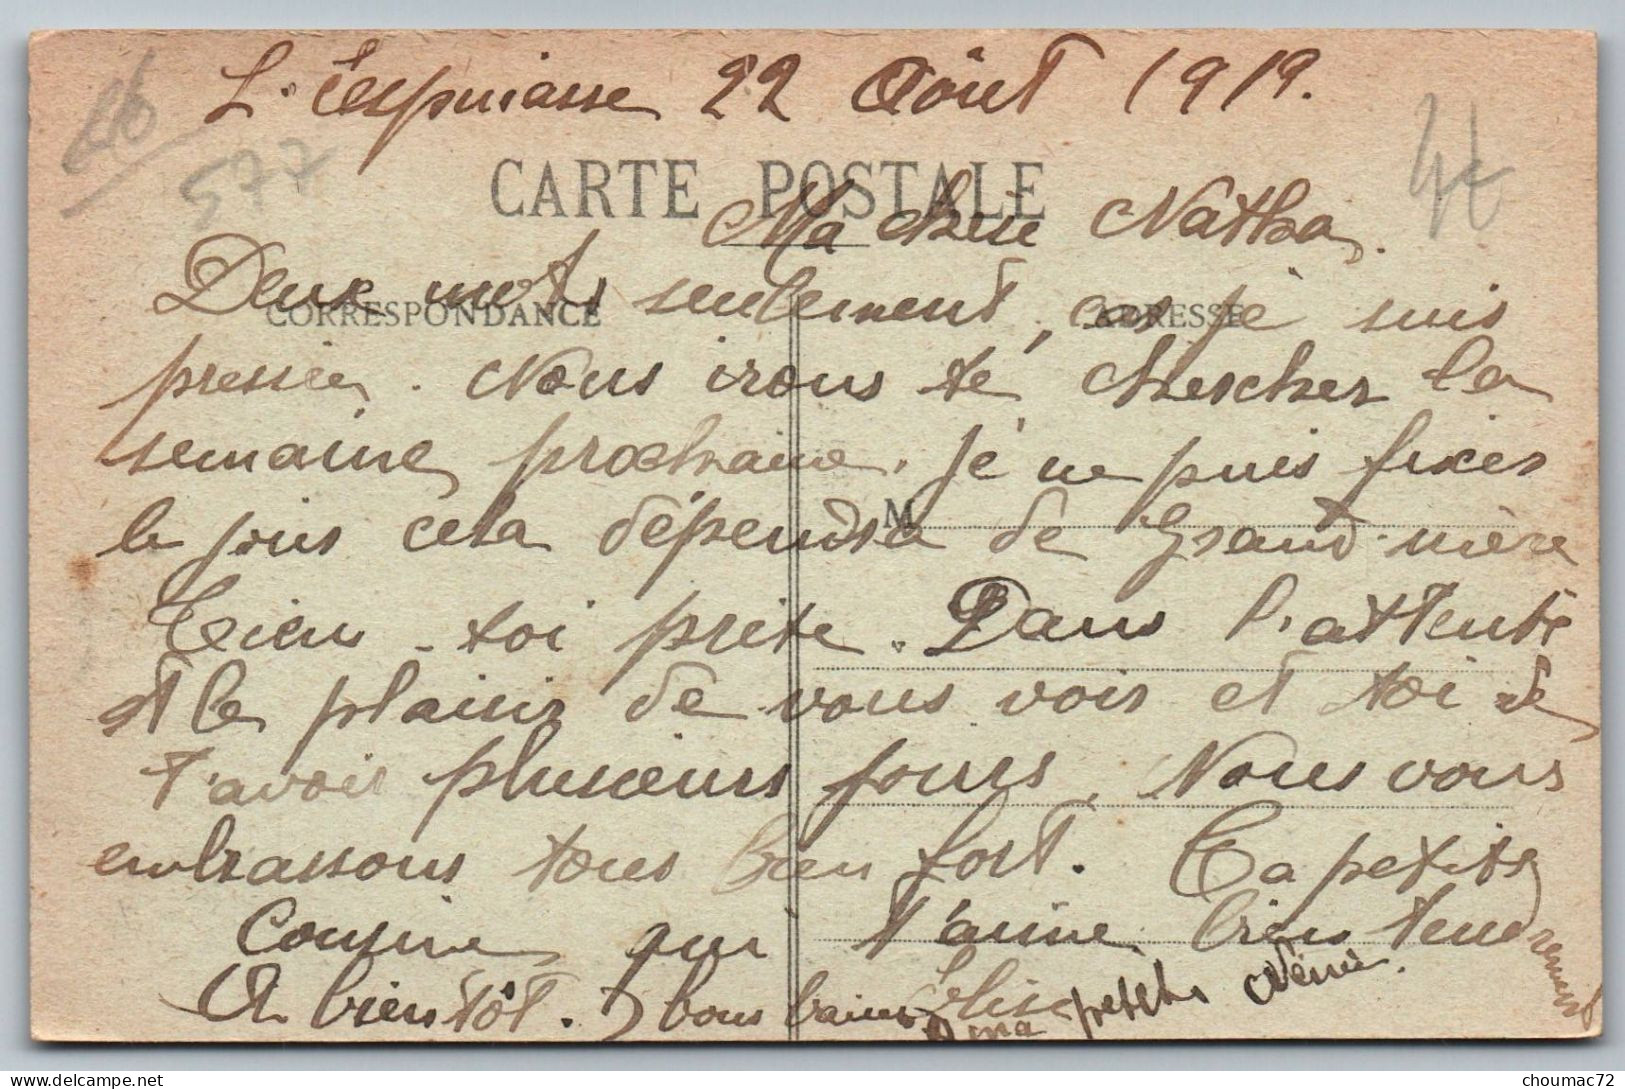 L'Espinasse 22 Août 1919.
577
4€
CARTE POSTALE
Ma chère Natha
CORRESPONDANCE
ADRESSE
Deux mots seulement, car je suis
pressée. Nous irons te chercher la
semaine prochaine. Je ne puis fixer
M
le jour cela dépendra de Grand-mère
Tiens-toi prête. Dans l'attente
et le plaisir de vous voir et toi de
t'avoir plusieurs jours. Nous vous
embrassons tous bien fort. Ta petite
Cousine qui t'aime bien tendrement
A bientôt. bons baisers Elise
à ma petite Ninie.
choumac72